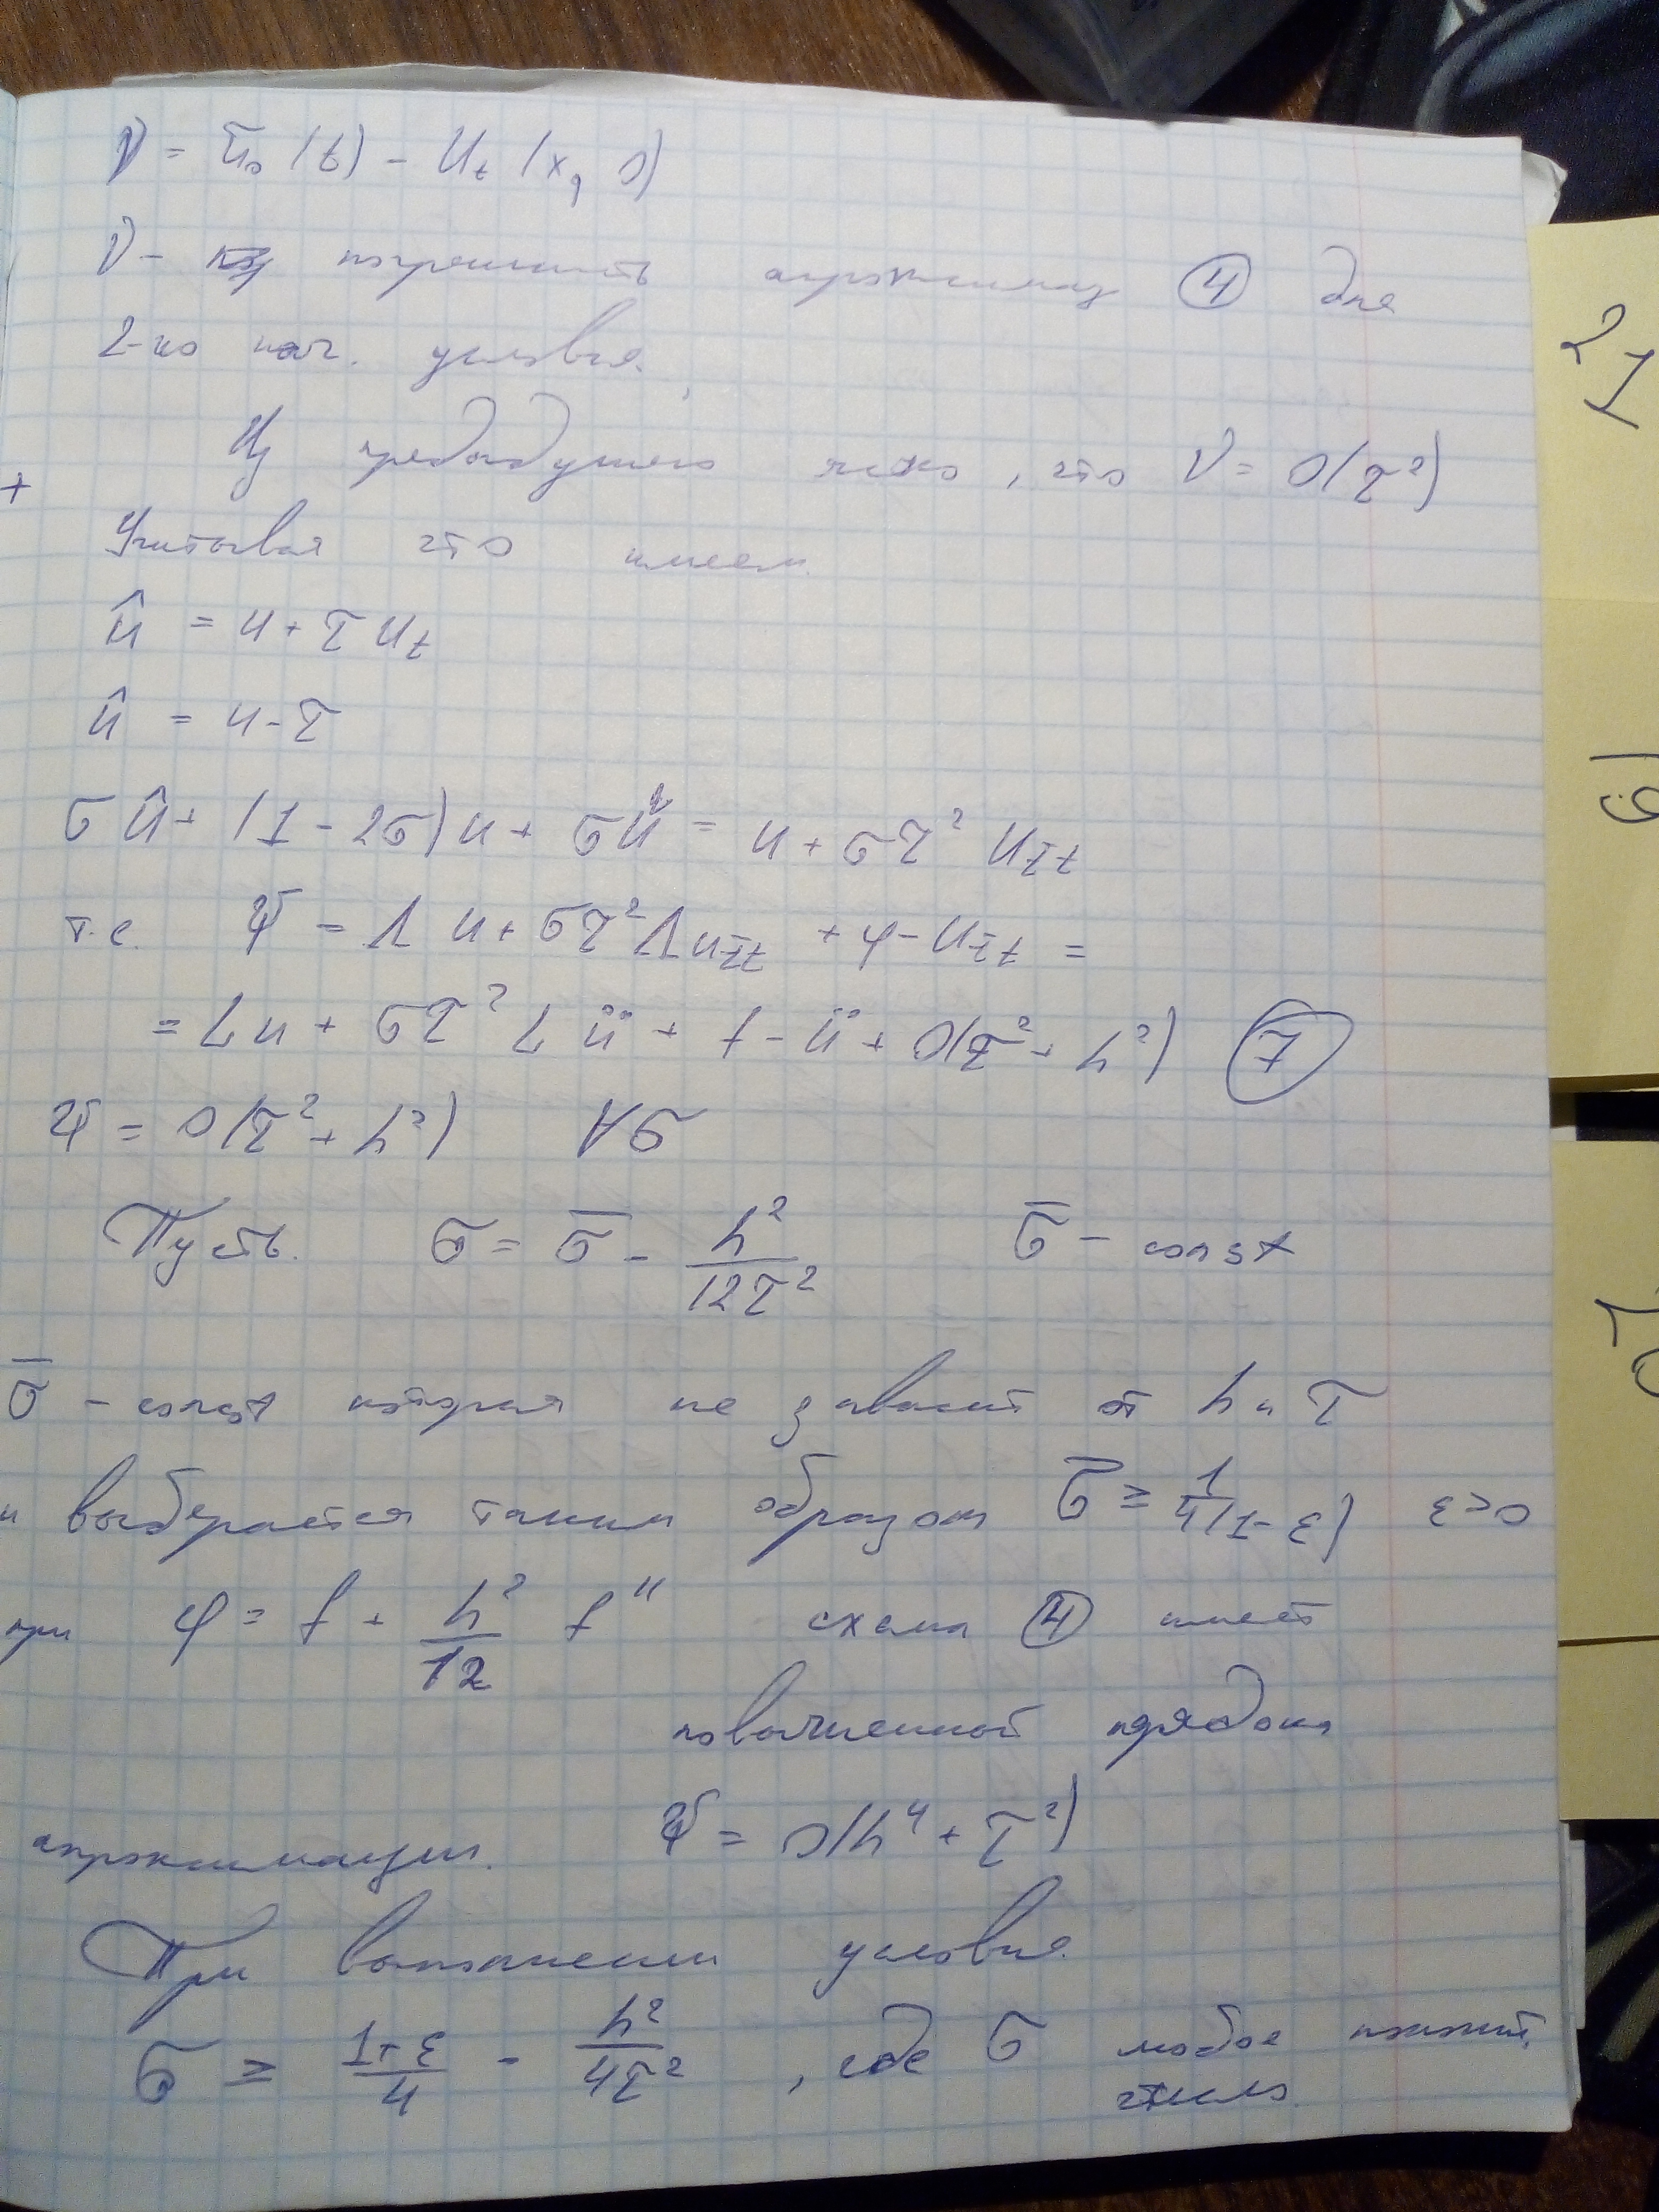 ν = ũ₀(x) - u_t(x, 0)
ν - погрешность аппроксимац ④ для
2-го нач. условия.
Из предыдущего ясно, что ν = O(τ²)
+
Учитывая это имеем
û = u + τ u_t
ǔ = u - τ
σû + (1 - 2σ)u + σǔ = u + στ² u_t̄t
т.е. ψ = Λu + στ²Λu_t̄t + φ - u_t̄t =
= Lu + στ² L ü + f - ü + O(τ² + h²) ⑦
ψ = O(τ² + h²) ∀σ
Пусть σ = σ̄ - h²/12τ² σ̄ - const
σ̄ - const которая не зависит от h и τ
и выберается таким образом σ̄ ≥ 1/4(1-ε) ε>0
при φ = f + h²/12 f'' схема ④ имеет
повышенной порядок
аппроксимации. ψ = O(h⁴ + τ²)
При выполнении условия
σ ≥ 1+ε/4 - h²/4τ² , где σ любое полжит.
число.
21
19
20